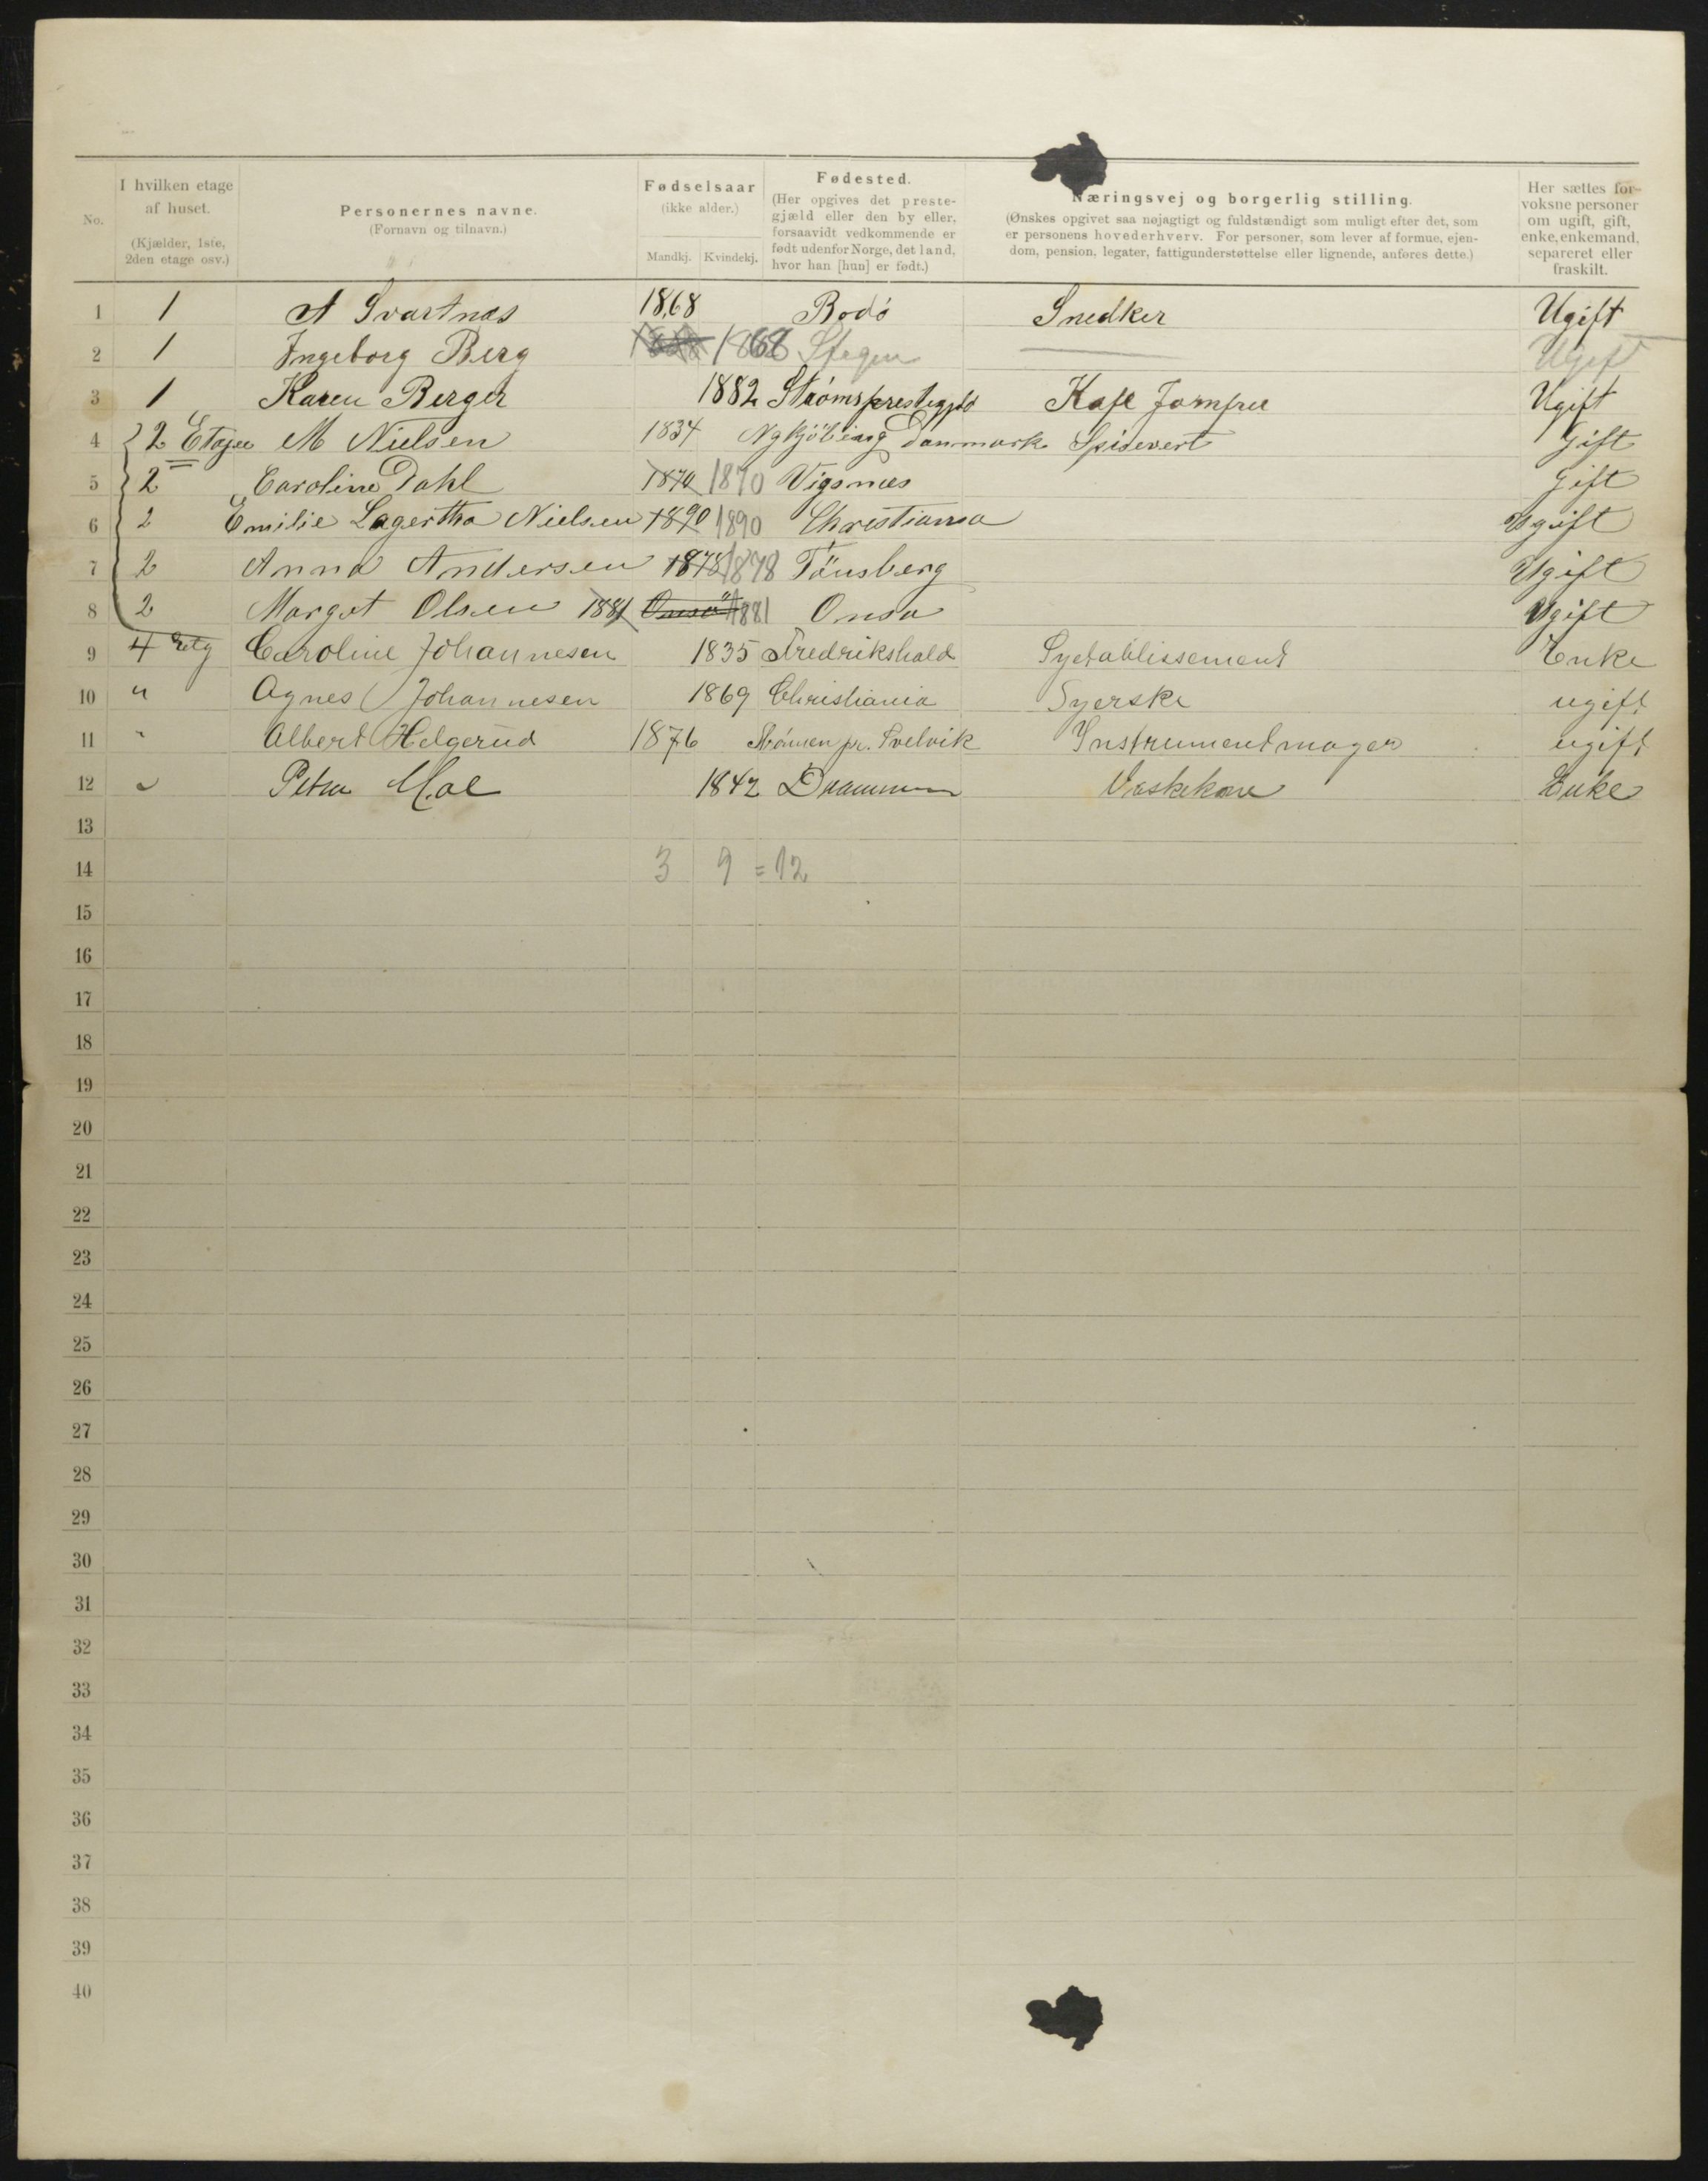 No. I hvilken etage af huset. (Kjælder, 1ste, 2den etage osv.) Personernes navne. (Fornavn og tilnavn.) Fødselsaar (ikke alder.) Mandkj. Kvindekj. Fødested. (Her opgives det prestegjæld eller den by eller, forsaavidt vedkommende er født udenfor Norge, det land, hvor han [hun] er født.) Næringsvej og borgerlig stilling. (Ønskes opgivet saa nøjagtigt og fuldstændigt som muligt efter det, som er personens hovederhverv. For personer, som lever af formue, ejendom, pension, legater, fattigunderstøttelse eller lignende, anføres dette.) Her sættes for voksne personer om ugift, gift, enke, enkemand, separeret eller fraskilt.
1 1 A Svartnæs 1868 Bodö Snedker Ugift
2 1 Ingeborg Berg 1868 Stegen Ugift
3 1 Karen Berger 1882 Strömsprestegjæld Kafe Jomfru Ugift
4 2 Etage M Nielsen 1834 Nykjöbing Danmark Spisevert Gift
5 2 Caroline Dahl 1870 1870 Vigsnæs Gift
6 2 Emilie Lagertha Nielsen 1890 1890 Christiania Ugift
7 2 Anna Andersen 1878 1878 Tönsberg Ugift
8 2 Margit Olsen 1881 Onsö 1881 Onsö Ugift
9 4 Etg Caroline Johannesen 1835 Fredrikshald Syetablissement Enke
10 " Agnes Johannesen 1869 Christiania Syerske ugift
11 " Albert Helgerud 1876 Strömen pr. Svelvik Instrumentmager ugift
12 " Petra Moe 1842 Drammen Vaskekone Enke
13
14 3 9 = 12
15
16
17
18
19
20
21
22
23
24
25
26
27
28
29
30
31
32
33
34
35
36
37
38
39
40